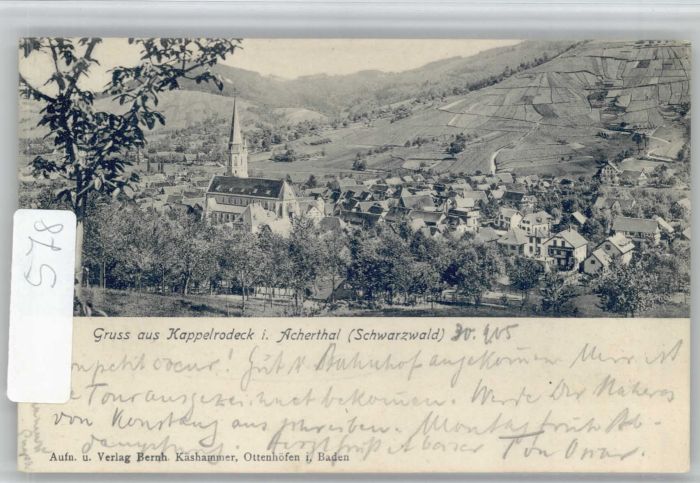 578
Gruss aus Kappelrodeck i. Acherthal (Schwarzwald) 30. 9.05
! Gut v. Bahnhof angekommen. Mir ist
die Tour ausgezeichnet bekommen. Werde Dir Näheres
von Konstanz aus schreiben. Montag früh Ab-
dampfung. Herzl.
Aufn. u. Verlag Bernh. Käshammer, Ottenhöfen i. Baden